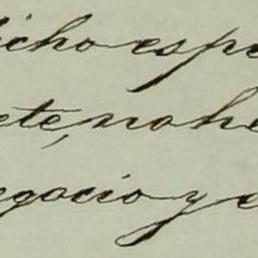 icho espe
ete, no he
egocio y e